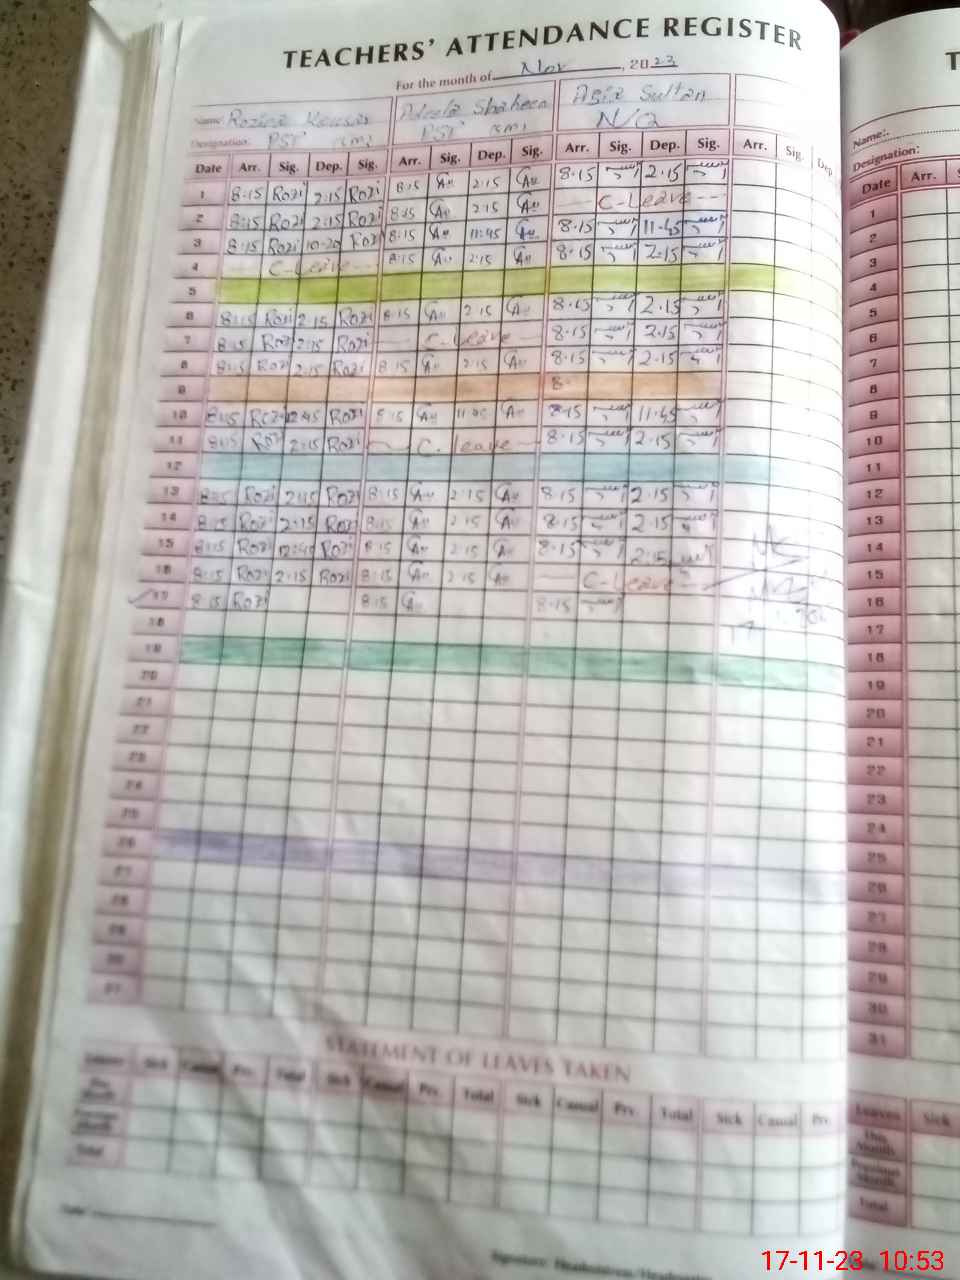 TEACHERS' ATTENDANCE REGISTER
For the month of Nov, 2023
Name Rozina Kousar Adeela Shaheen Asia Sultan
Designation: PST N/Q
Date Arr. Sig. Dep. Sig. Arr. Sig. Dep. Sig. Arr. Sig. Dep. Sig. Arr. Sig. Dep
1 8:15 Rozi 2:15 Rozi 8:15 2:15 8:15 2:15
2 8:15 Rozi 2:15 Rozi 8:15 2:15 C-Leave
3 8:15 Rozi 10:20 Rozi 8:15 11:45 8:15 11:45
4 C-Leave 8:15 2:15 8:15 2:15
5
6 8:15 Rozi 2:15 Rozi 8:15 2:15 8:15 2:15
7 8:15 Rozi 2:15 Rozi C-Leave 8:15 2:15
8 8:15 Rozi 2:15 Rozi 8:15 2:15 8:15 2:15
9 8-
10 8:15 Rozi 12:45 Rozi 8:15 11:45 8:15 11:45
11 8:15 Rozi 2:15 Rozi C. leave 8:15 2:15
12
13 8:15 Rozi 2:15 Rozi 8:15 2:15 8:15 2:15
14 8:15 Rozi 2:15 Rozi 8:15 2:15 8:15 2:15
15 8:15 Rozi 12:40 Rozi 8:15 2:15 8:15 2:15
16 8:15 Rozi 2:15 Rozi 8:15 2:15 C-Leave
17 8:15 Rozi 8:15 8:15
18
19
20
21
22
23
24
25
26
27
28
29
30
31
STATEMENT OF LEAVES TAKEN
Leaves Sick Casual Prv. Total Sick Casual Prv. Total Sick Casual Prv. Total Sick Casual Prv.
This Month
Previous Month
Total
Date
T
Name:
Designation:
Date Arr. S
1
2
3
4
5
6
7
8
9
10
11
12
13
14
15
16
17
18
19
20
21
22
23
24
25
26
27
28
29
30
31
Leaves Sick
This Month
Previous Month
Total
17-11-23 10:53